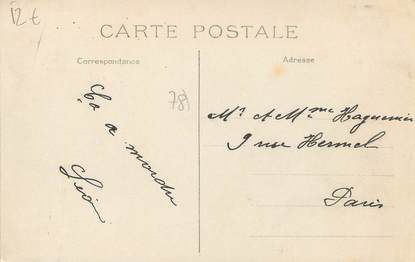 12 €
CARTE POSTALE
Correspondance
Adresse
78)
Ça a mordu
Mr et Mme
9 rue Hermel
Paris